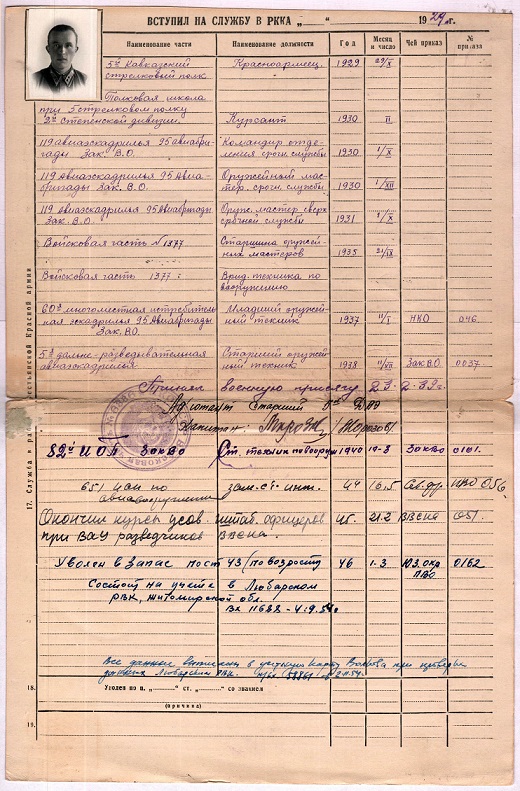 ВСТУПИЛ НА СЛУЖБУ В РККА „—“ 1929 г.
Наименование части Наименование должности Год Месяц и число Чей приказ № приказа
5й Кавказский Красноармеец. 1929 29/X
стрелковый полк
Полковая школа
при 5 стрелковом полку Курсант 1930 II
2й Степенской дивизии.
119 авиаэскадрилья 95 авиабри- Командир отде-
гады Зак. В.О. ления срочн. службы 1930 1/X
119 авиаэскадрилья 95 Авиа- Оружейный мас-
бригады Зак. В.О. тер. срочн. службы. 1930 1/XII
119 Авиаэскадрилья 95 Авиабригады Оруж. мастер сверх
Зак. В.О. срочной службы 1931 1/X
Войсковая часть № 1377 Старшина оружей-
ных мастеров 1935 21/IX
Войсковая часть 1377 : Врид. техника по
вооружению.
60я многоместная истребитель- Младший оружей-
ная эскадрилья 95 Авиабригады ный техник 1937 11/I НКО 046.
Зак. ВО.
5я дальне-разведывательная Старший оружей-
авиаэскадрилья ный техник 1938 VII Зак В.О. 0037.
Принял военную присягу 23-2-39 г.
Адъютант Старший 5й ДАО
Капитан: /Морозов/
82й ИАП ЗакВО Ст. техник по вооруж 1940 19-3 ЗакВО 0101.
651 иап по зам. ст. инж. 44 16.5 НКО 056
авиавооружению
Окончил курсы усов. штаб. офицеров 45. 21.2 051
при ВАУ разведчиков
Уволен в запас по ст 43 /по возрасту 46 1.3 Ю.З. окр ПВО 0162
Состоит на учете в Любарском
РВК, Житомирской обл.
Вх 11688 - 4.9.54г
Все данные в учетную карту при
17. Служба в
естьянской Красной армии
18. Уволен по п. „—“ ст. „—“ со званием
(причина)
19.